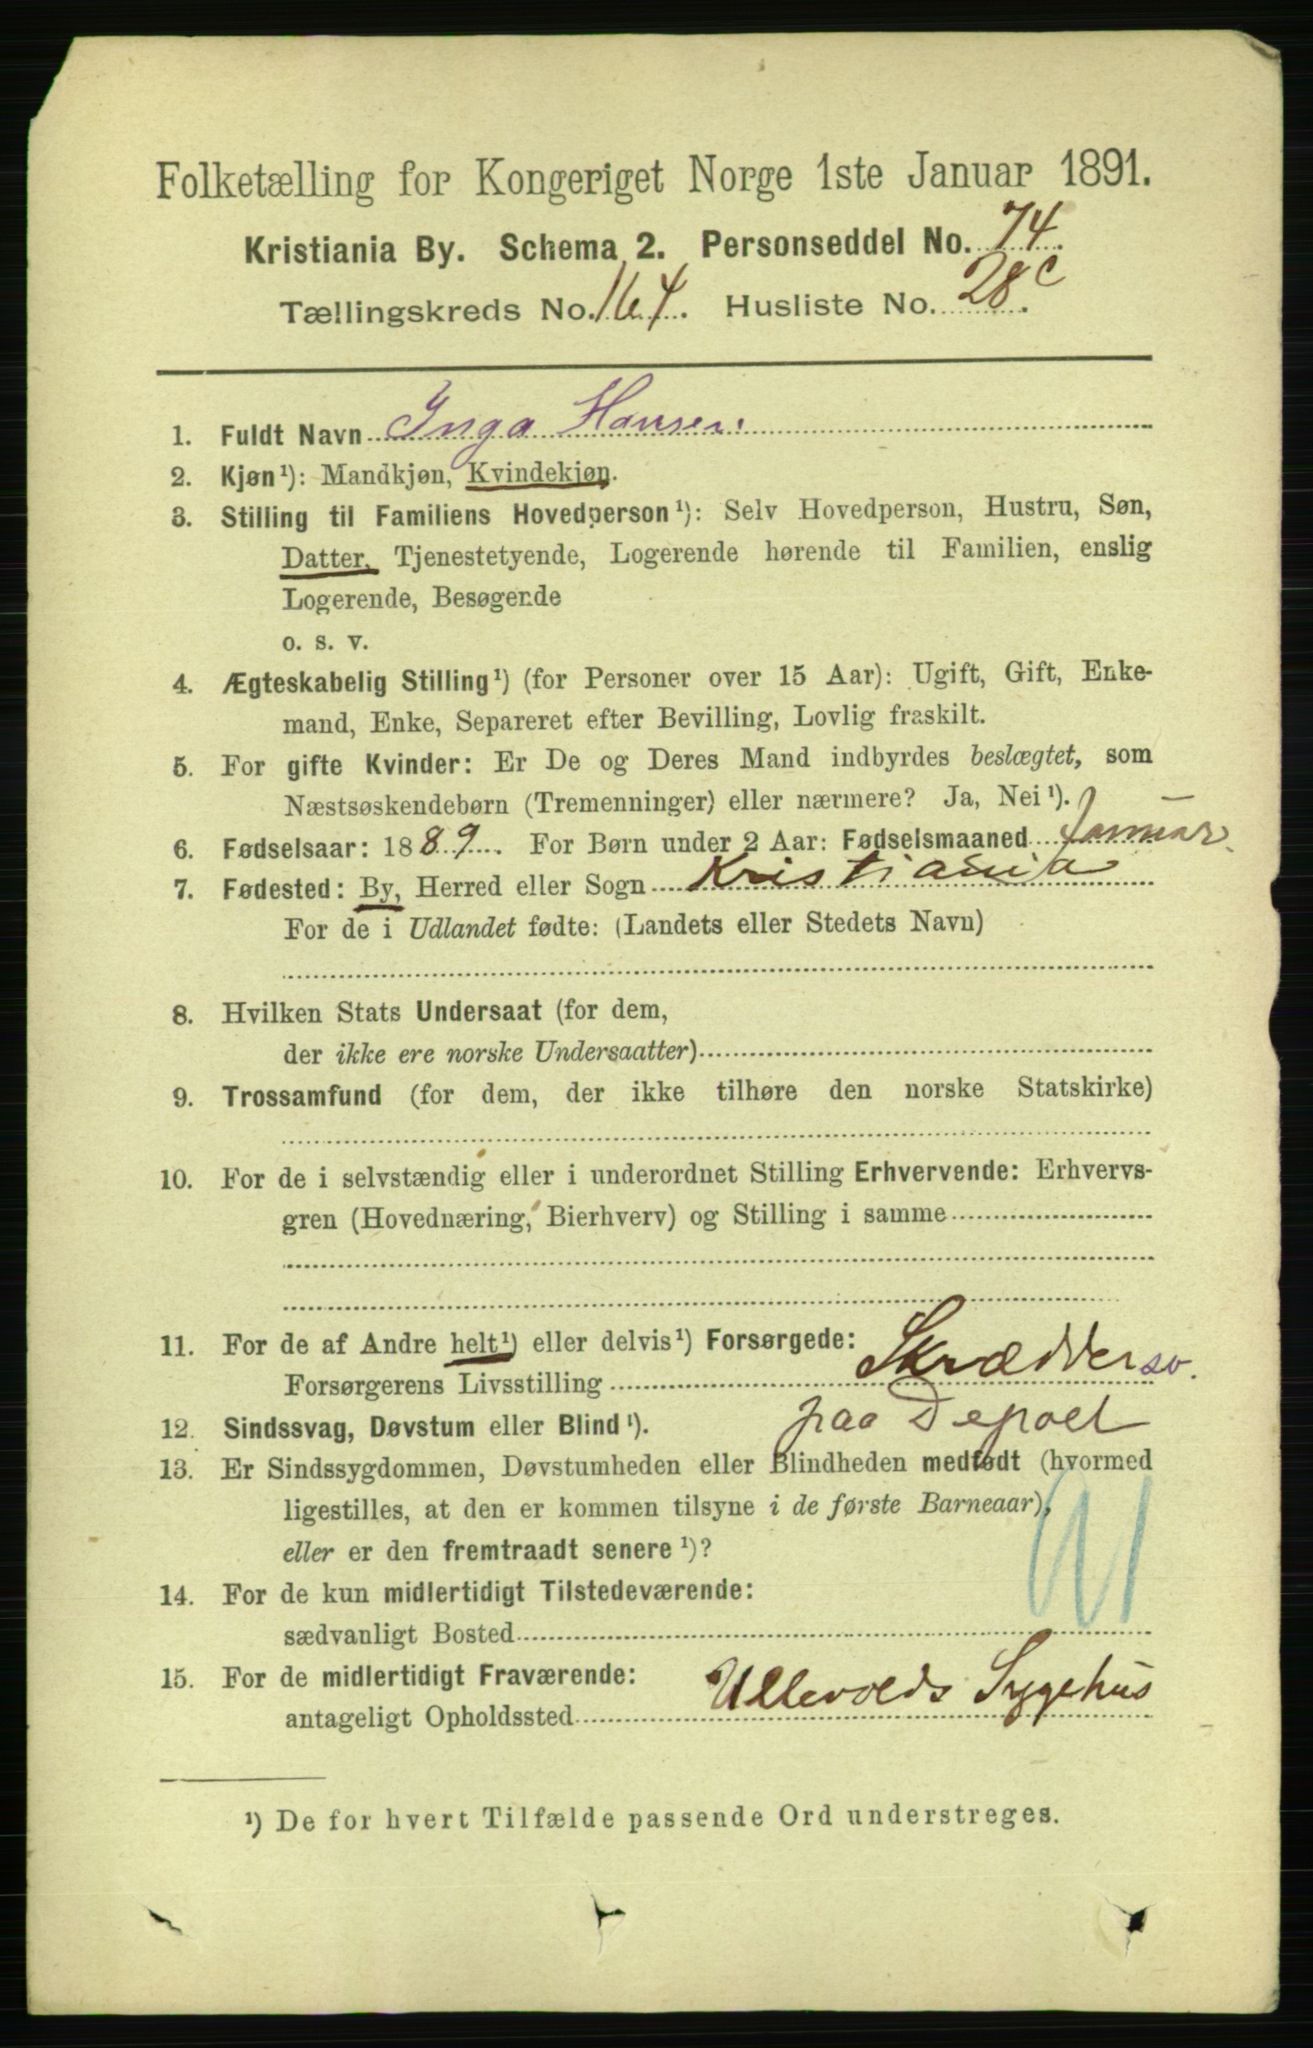 Folketælling for Kongeriget Norge 1ste Januar 1891.
Kristiania By. Schema 2. Personseddel No. 74.
Tællingskreds No. 164. Husliste No. 28c.
1. Fuldt Navn Inga Hansen.
2. Kjøn¹): Mandkjøn, Kvindekjøn.
3. Stilling til Familiens Hovedperson¹): Selv Hovedperson, Hustru, Søn,
Datter, Tjenestetyende, Logerende hørende til Familien, enslig
Logerende, Besøgende
o. s. v.
4. Ægteskabelig Stilling¹) (for Personer over 15 Aar): Ugift, Gift, Enke-
mand, Enke, Separeret efter Bevilling, Lovlig fraskilt.
5. For gifte Kvinder: Er De og Deres Mand indbyrdes beslægtet, som
Næstsøskendebørn (Tremenninger) eller nærmere? Ja, Nei¹).
6. Fødselsaar: 1889. For Børn under 2 Aar: Fødselsmaaned Januar.
7. Fødested: By, Herred eller Sogn Kristiania
For de i Udlandet fødte: (Landets eller Stedets Navn)
8. Hvilken Stats Undersaat (for dem,
der ikke ere norske Undersaatter)
9. Trossamfund (for dem, der ikke tilhøre den norske Statskirke)
10. For de i selvstændig eller i underordnet Stilling Erhvervende: Erhvervs-
gren (Hovednæring, Bierhverv) og Stilling i samme
11. For de af Andre helt¹) eller delvis¹) Forsørgede:
Forsørgerens Livsstilling Skrædder
12. Sindssvag, Døvstum eller Blind¹). paa Depoet
13. Er Sindssygdommen, Døvstumheden eller Blindheden medfødt (hvormed
ligestilles, at den er kommen tilsyne i de første Barneaar),
eller er den fremtraadt senere¹)?
14. For de kun midlertidigt Tilstedeværende:
sædvanligt Bosted
15. For de midlertidigt Fraværende:
antageligt Opholdssted Ullevolds Sygehus
¹) De for hvert Tilfælde passende Ord understreges.